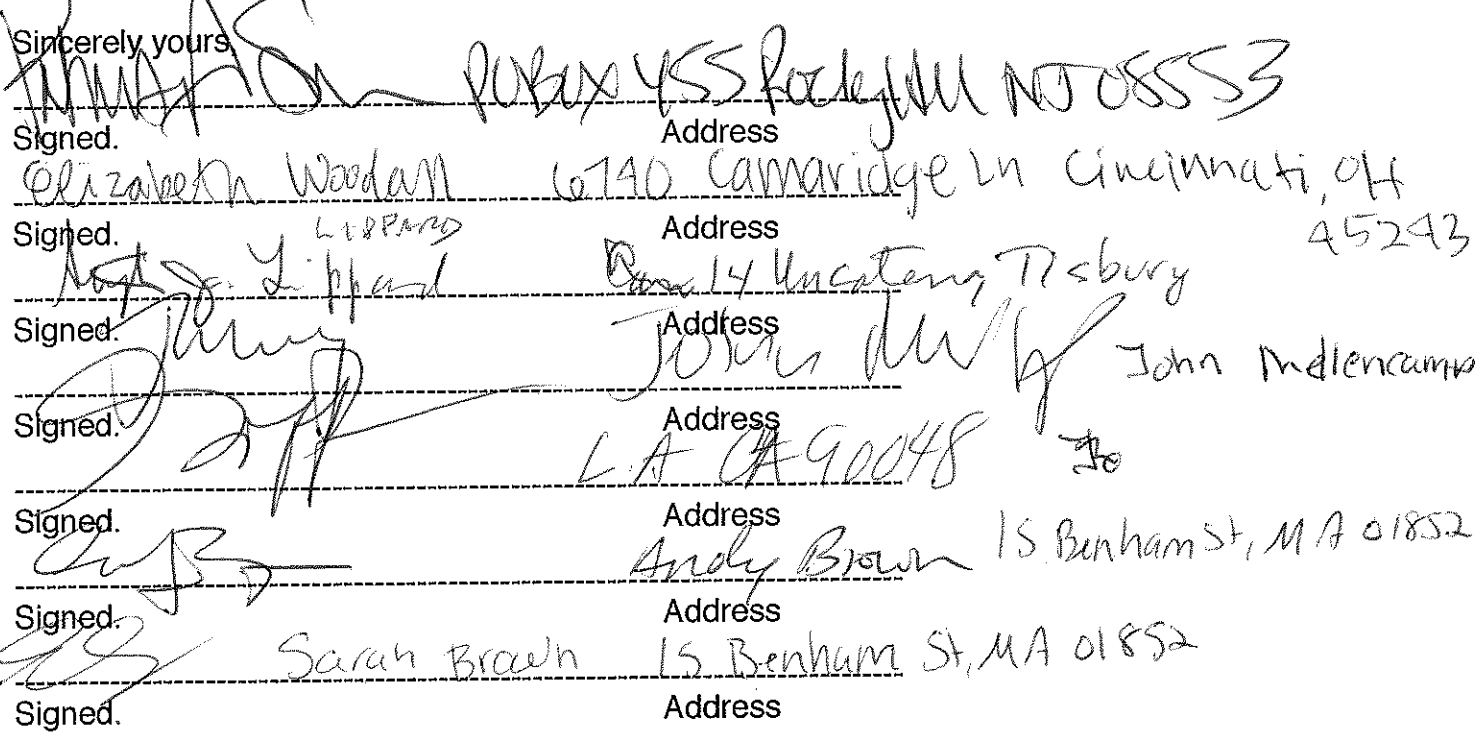 Sincerely yours,
PO BOX 455 Rocky Hill NJ 08553
Signed. Address
Elizabeth Woodall 6740 Camaridge Ln Cincinnati, OH
45243
Signed. Address
LIPPARD
J. Lippard 14 Tisbury
Signed. Address
John Mellencamp
Signed. Address
L.A CA 90048
Signed. Address
Andy Brown 15 Benham St, MA 01852
Signed. Address
Sarah Brown 15 Benham St, MA 01852
Signed. Address